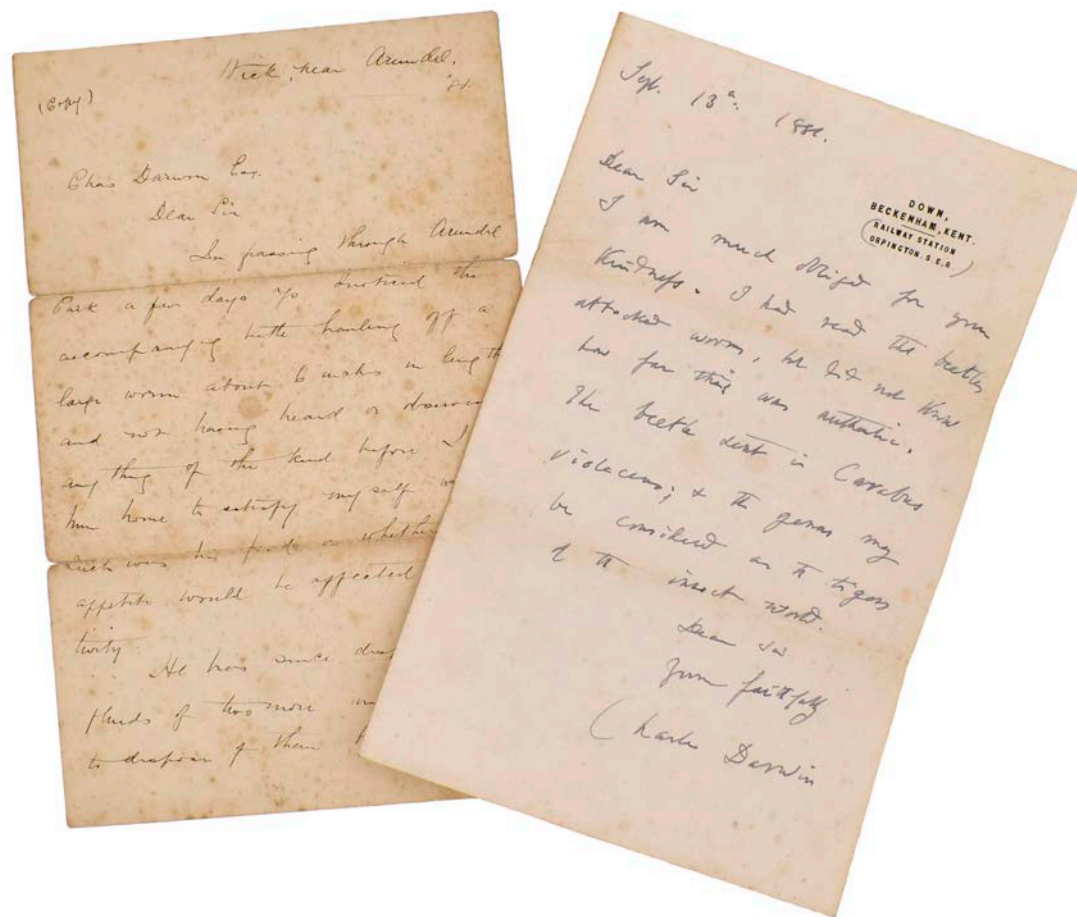 Wick, near Arundel.
(Copy)
Chas Darwin Esq.
Dear Sir
In passing through Arundel
Park a few days ago I noticed the
accompanying beetle hauling off a
large worm about 6 inches in length
and not having heard or observed
any thing of the kind before I
him home to satisfy myself
such was his food or whether
appetite would be affected
tivity.
He has since
fluids of two more
to dispose of them
Sept. 13th 1881.
DOWN,
BECKENHAM, KENT.
(RAILWAY STATION
ORPINGTON. S.E.R.)
Dear Sir
I am much obliged for your
kindness. I had read the beetles
attacked worms, but did not know
how far this was authentic.
The beetle sent is Carabus
violaceus; & the genus may
be considered as the tigers
of the insect world.
Dear Sir
Yours faithfully
Charles Darwin